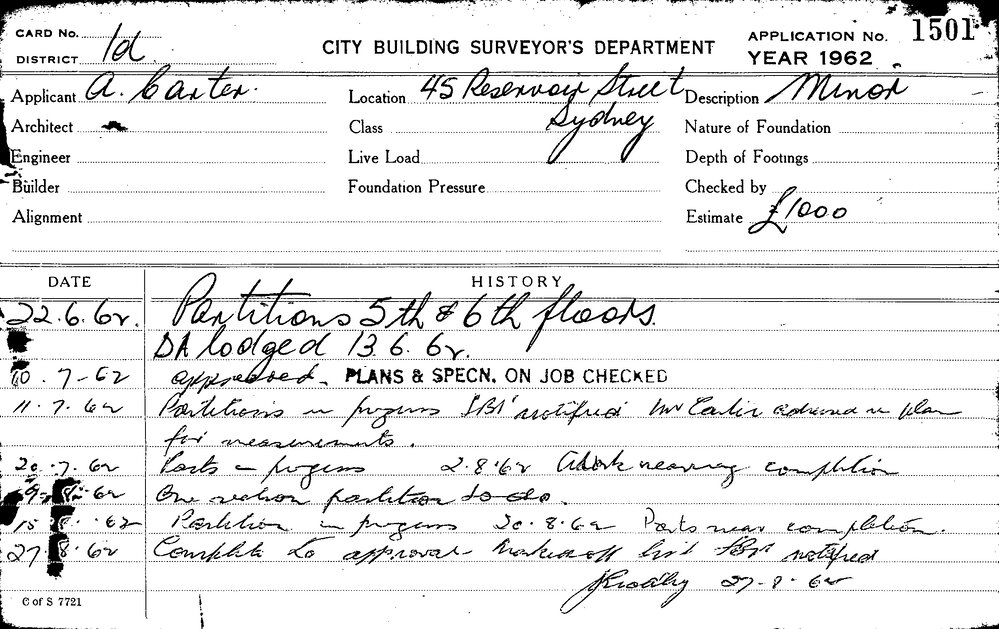 CARD No.
DISTRICT 1d
CITY BUILDING SURVEYOR'S DEPARTMENT
APPLICATION No. 1501
YEAR 1962
Applicant A. Carter.
Location 45 Reservoir Street
Sydney
Description Minor
Architect
Class
Nature of Foundation
Engineer
Live Load
Depth of Footings
Builder
Foundation Pressure
Checked by
Alignment
Estimate £1000
DATE
HISTORY
22.6.62. Partitions 5th & 6th floors.
DA lodged 13.6.62.
10.7-62 approved - PLANS & SPECN. ON JOB CHECKED
11.7.62 Partitions in progress notified Mr plan
for measurements.
20.7.62 Parts in progress 2.8.62 Work nearing completion
9.8.62 One partition to do.
15.8.62 Partition in progress 20.8.62 Parts near completion.
27.8.62 Complete to approval notified
27-8-62
C of S 7721